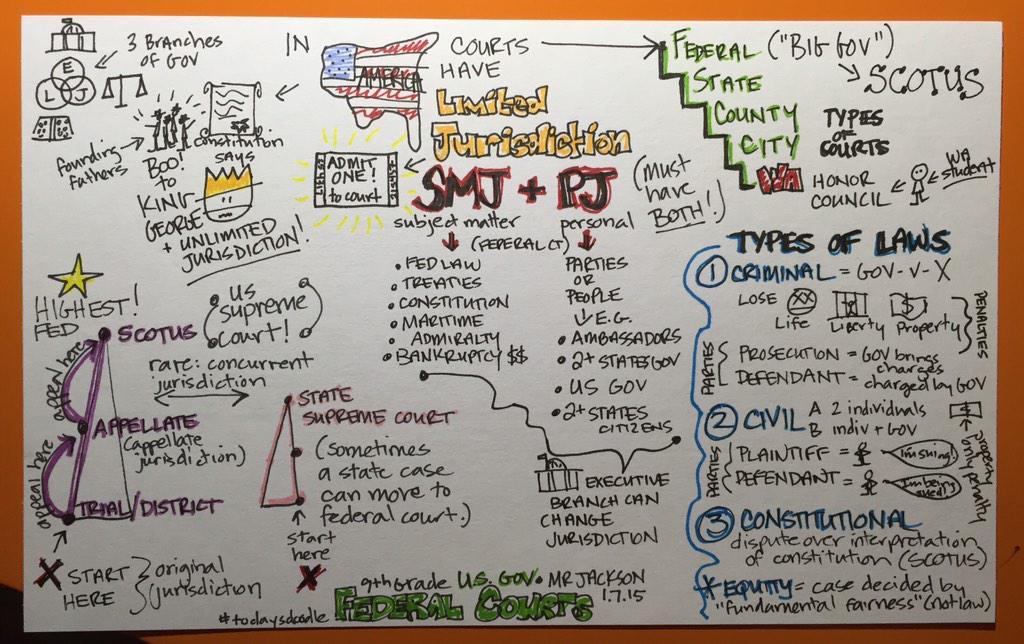 3 BRANCHES
OF GOV
E
L J
founding
fathers
BOO!
to
KING
GEORGE
+ UNLIMITED
JURISDICTION!
constitution
SAYS
IN
AMERICA
COURTS
HAVE
LIMITED
JURISDICTION
ADMIT
ONE!
to court
SMJ + PJ
(MUST
HAVE
BOTH!)
subject matter
personal
(FEDERAL CT)
• FED LAW
• TREATIES
• CONSTITUTION
• MARITIME
• ADMIRALTY
• BANKRUPTCY $$
PARTIES
OR
PEOPLE
E.G.
• AMBASSADORS
• 2+ STATES GOV
• US GOV
• 2+ STATES
CITIZENS
EXECUTIVE
BRANCH CAN
CHANGE
JURISDICTION
FEDERAL ("BIG GOV")
SCOTUS
STATE
COUNTY
CITY
TYPES
OF
COURTS
WA
HONOR
COUNCIL
WA
student
HIGHEST!
FED
SCOTUS
(US
supreme
court!)
appeal here
rare: concurrent
jurisdiction
APPELLATE
(appellate
jurisdiction)
appeal here
TRIAL/DISTRICT
X START
HERE
original
jurisdiction
STATE
SUPREME COURT
(sometimes
a state case
can move to
federal court.)
start
here
X
TYPES OF LAWS
① CRIMINAL = GOV-V-X
LOSE
Life
Liberty
$
Property
PENALTIES
PARTIES
PROSECUTION = GOV brings
charges
DEFENDANT = charged by GOV
② CIVIL
A 2 individuals
B indiv + GOV
$
property
only penalty
PARTIES
PLAINTIFF =
I'm suing!
DEFENDANT =
I'm being
sued!
③ CONSTITUTIONAL
dispute over interpretation
of constitution (SCOTUS)
* EQUITY = case decided by
"fundamental fairness" (not law)
9th Grade U.S. GOV • MR JACKSON
FEDERAL COURTS
1.7.15
#todaysdoodle